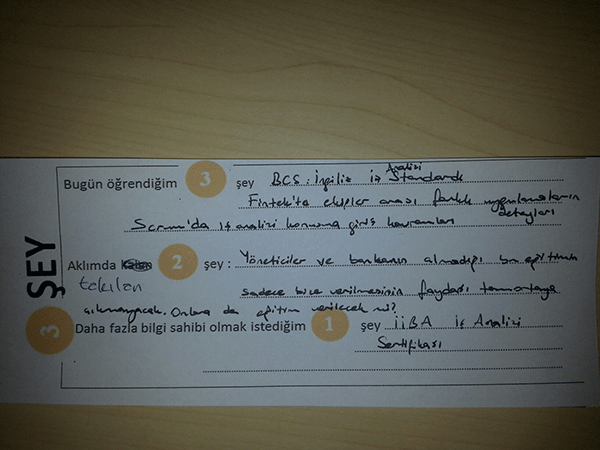 3 ŞEY
Bugün öğrendiğim 3 şey BCS : İngiliz iş Analizi Standardı
Fintek'te ekipler arası farklı uygulamaların detayları
Scrum'da iş analizi konusuna giriş kavramları
Aklımda takılan 2 şey : Yöneticiler ve bankanın almadığı bu eğitimin
sadece bize verilmesinin faydası tam ortaya
çıkmayacak. Onlara da eğitim verilecek mi?
Daha fazla bilgi sahibi olmak istediğim 1 şey IIBA İş Analizi
Sertifikası